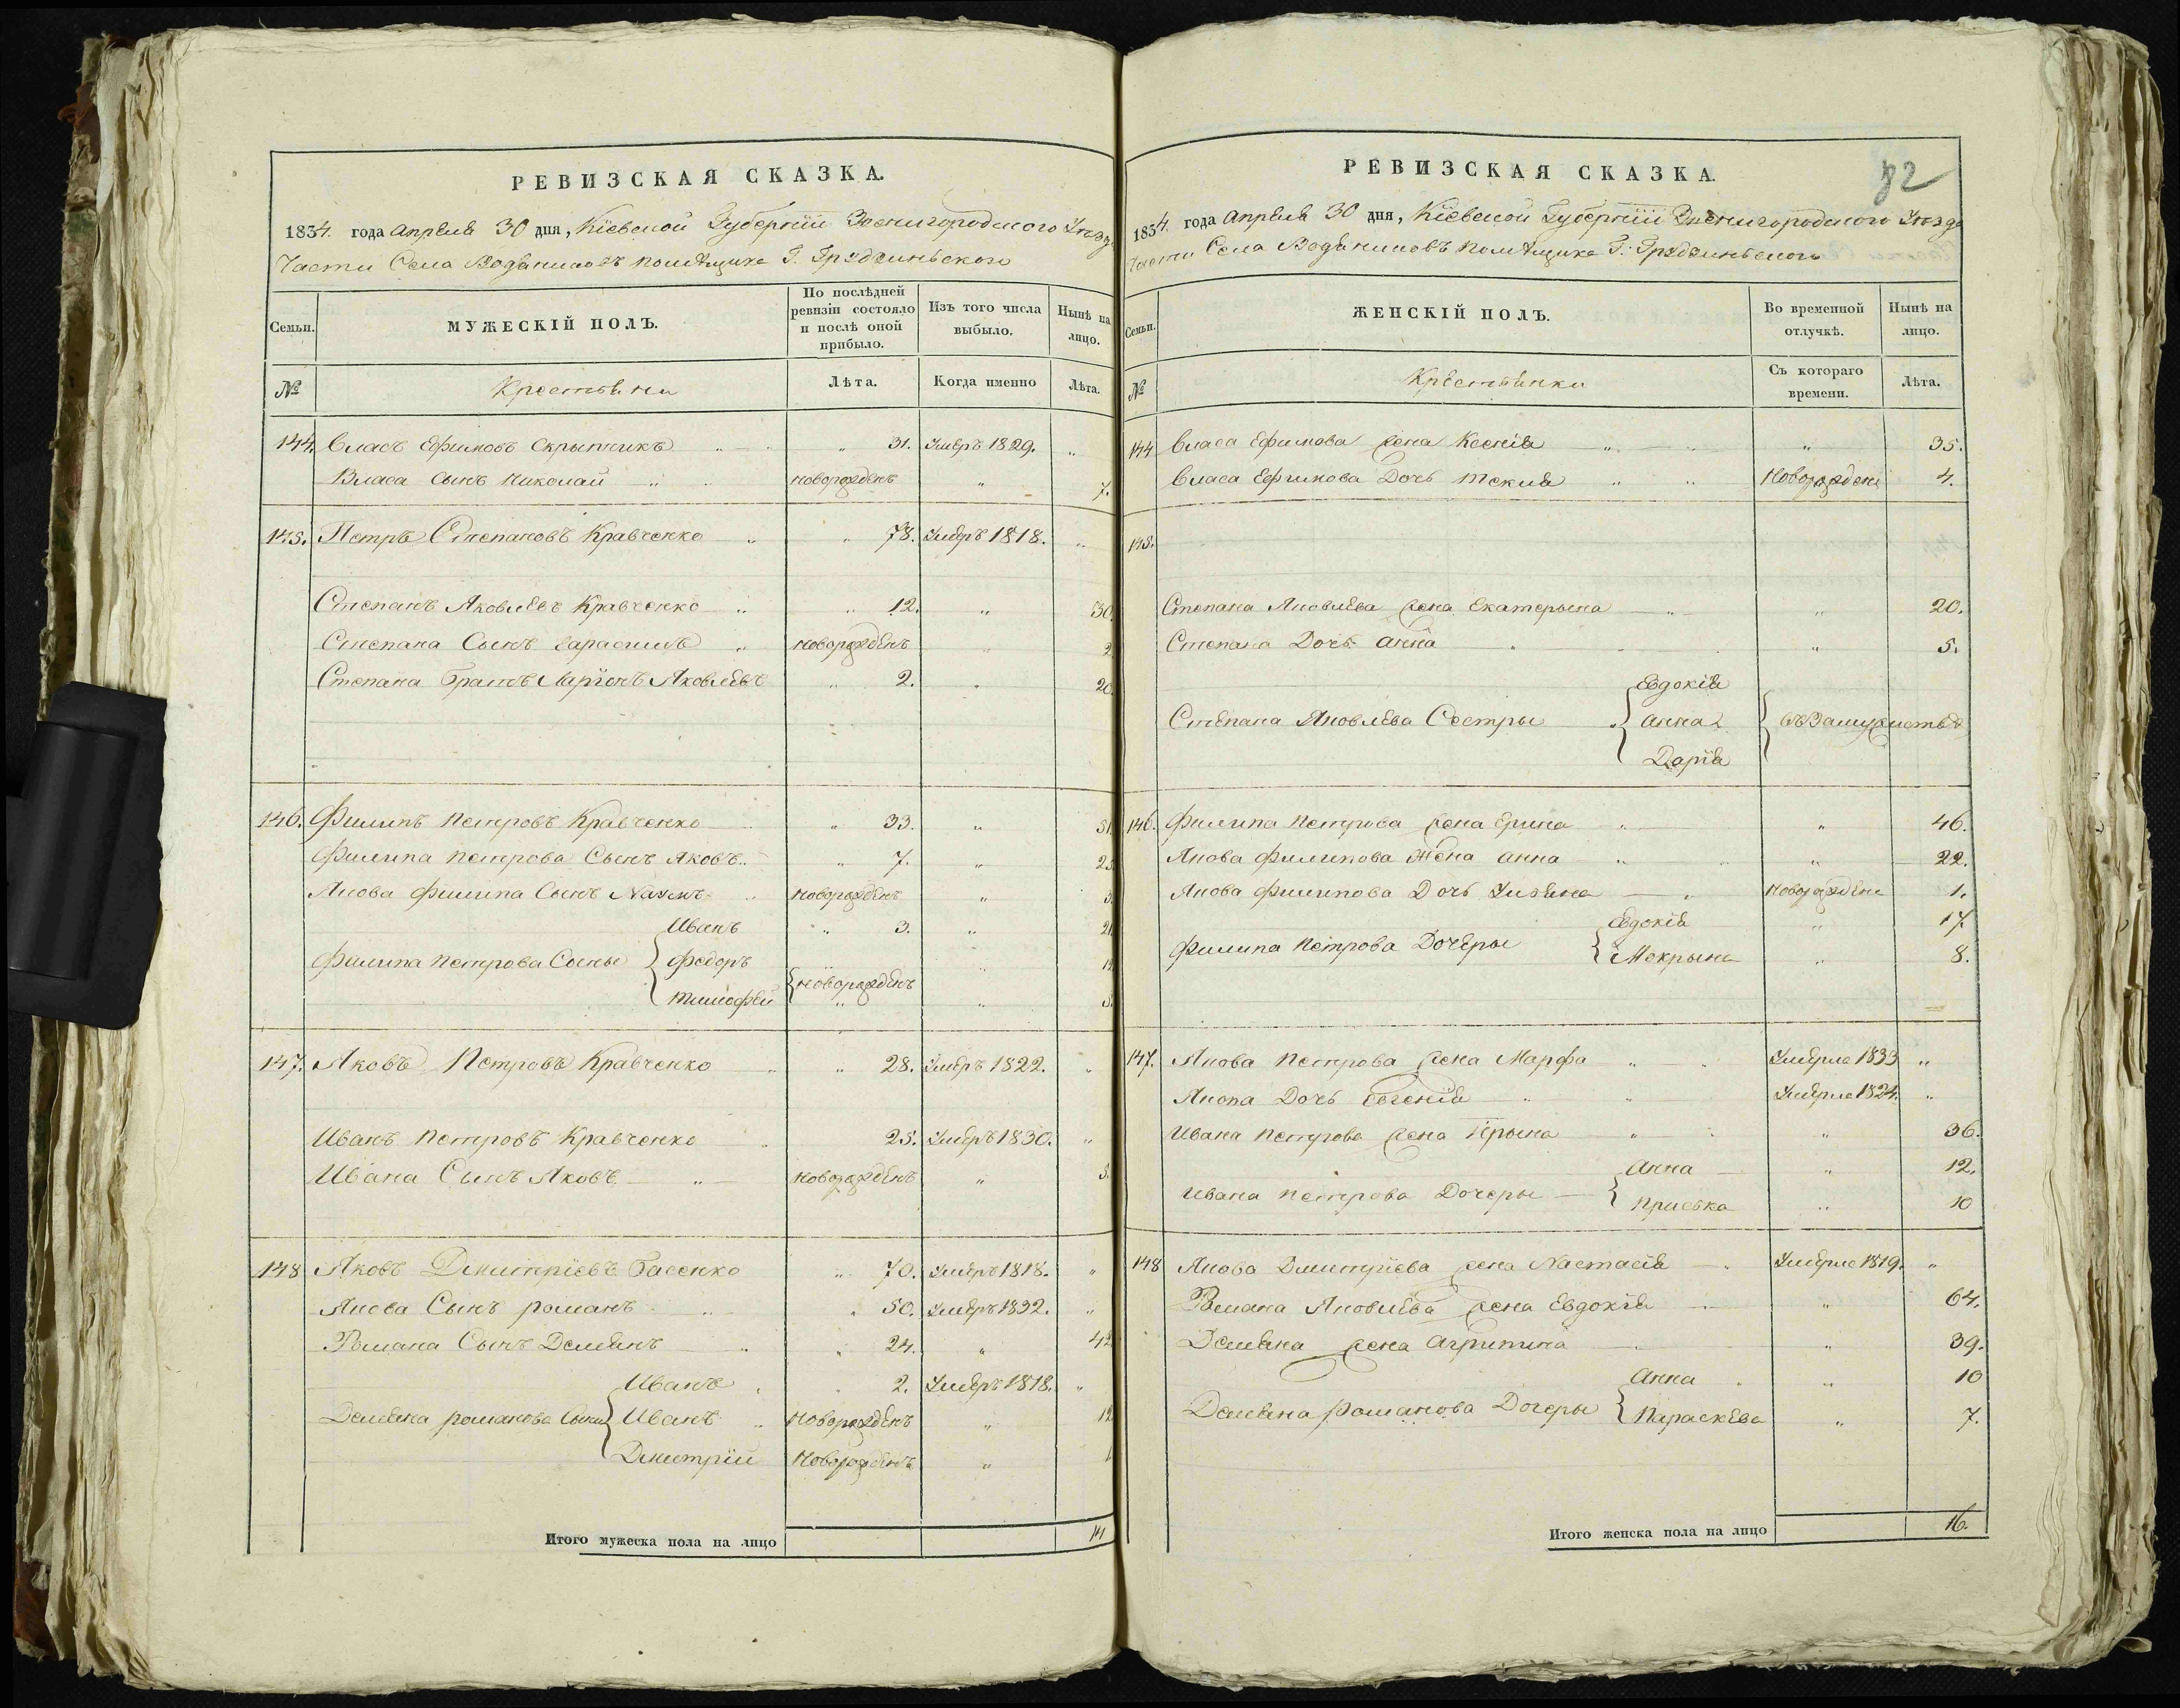 РЕВИЗСКАЯ СКАЗКА.
1834. года Апреля 30 дня, Кіевской Губерніи Звенигородского Уезда
Части Села Водяниковъ помѣщика Г.
Семьи.
МУЖЕСКІЙ ПОЛЪ.
По послѣдней ревизіи состояло и послѣ оной прибыло.
Изъ того числа выбыло.
Нынѣ на лицо.
№ Крестьяни Лѣта. Когда именно Лѣта.
144. Власъ Ефимовъ Скрыпникъ „ 31. Умеръ 1829. „
Власа Сынъ Николай „ новорожденъ „ 7.
145. Петръ Степановъ Кравченко „ 78. Умеръ 1818. „
Степанъ Яковлевъ Кравченко „ 12. „ 30
Степана Сынъ „ новорожденъ „ 2
Степана Братъ Ларіонъ Яковлевъ „ 2. „ 20
146. Филипъ Петровъ Кравченко „ 33. „ 51
Филипа Петрова Сынъ Яковъ „ 7. „ 25
Якова Филипа Сынъ Наумъ „ новорожденъ „ 3
Иванъ „ 3. „ 21
Филипа Петрова Сыны Федоръ новорожденъ „
Тимофей „ „
147. Яковъ Петровъ Кравченко „ 28. Умеръ 1822. „
Иванъ Петровъ Кравченко „ 25. Умеръ 1830. „
Ивана Сынъ Яковъ „ новорожденъ „ 5.
148 Яковъ Дмитріевъ Басенко „ 70. Умеръ 1818. „
Якова Сынъ романъ „ 50. Умеръ 1832. „
Романа Сынъ Демянъ „ 24. „ 42
Иванъ „ 2. Умеръ 1818. „
Демяна романова Сыны Иванъ „ Новорожденъ „ 12
Дмитрій Новорожденъ „ 1
Итого мужеска пола на лицо 14
РЕВИЗСКАЯ СКАЗКА.
82
1834. года Апреля 30 дня, Кіевской Губерніи Звенигородского Уезда
Части Села Водяниковъ помѣщика Г.
Семьи.
ЖЕНСКІЙ ПОЛЪ.
Во временной отлучкѣ.
Нынѣ на лицо.
№ Крестьянки Съ котораго времени. Лѣта.
144 Власа Ефимова жена Ксенія „ „ 35.
Власа Ефимова Дочь Текля „ Новорождена 4.
145.
Степана Яковлева жена Екатерына „ „ 20.
Степана Дочь Анна „ „ 5.
Евдокія
Степана Яковлева Сестры Анна въ Замужистьве
Дарія
146. Филипа Петрова жена Ерина „ „ 46.
Якова Филипова Жена Анна „ „ 22.
Якова Филипова Дочь Уляна „ Новорождена 1.
Евдокія „ 17
Филипа Петрова Дочеры Мокрына „ 8.
147. Якова Петрова жена Марфа „ Умерла 1833 „
Якова Дочь Евгенія „ Умерла 1824. „
Ивана Петрова жена Ірына „ „ 36.
Анна „ 12.
Ивана Петрова Дочеры Приська „ 10
148 Якова Дмитріева жена Настасія „ Умерла 1819. „
Романа Яковлева жена Евдокія „ 64.
Демяна жена Агрипина „ 39.
Анна „ 10
Демяна романова Дочеры Параскева „ 7.
Итого женска пола на лицо 16.